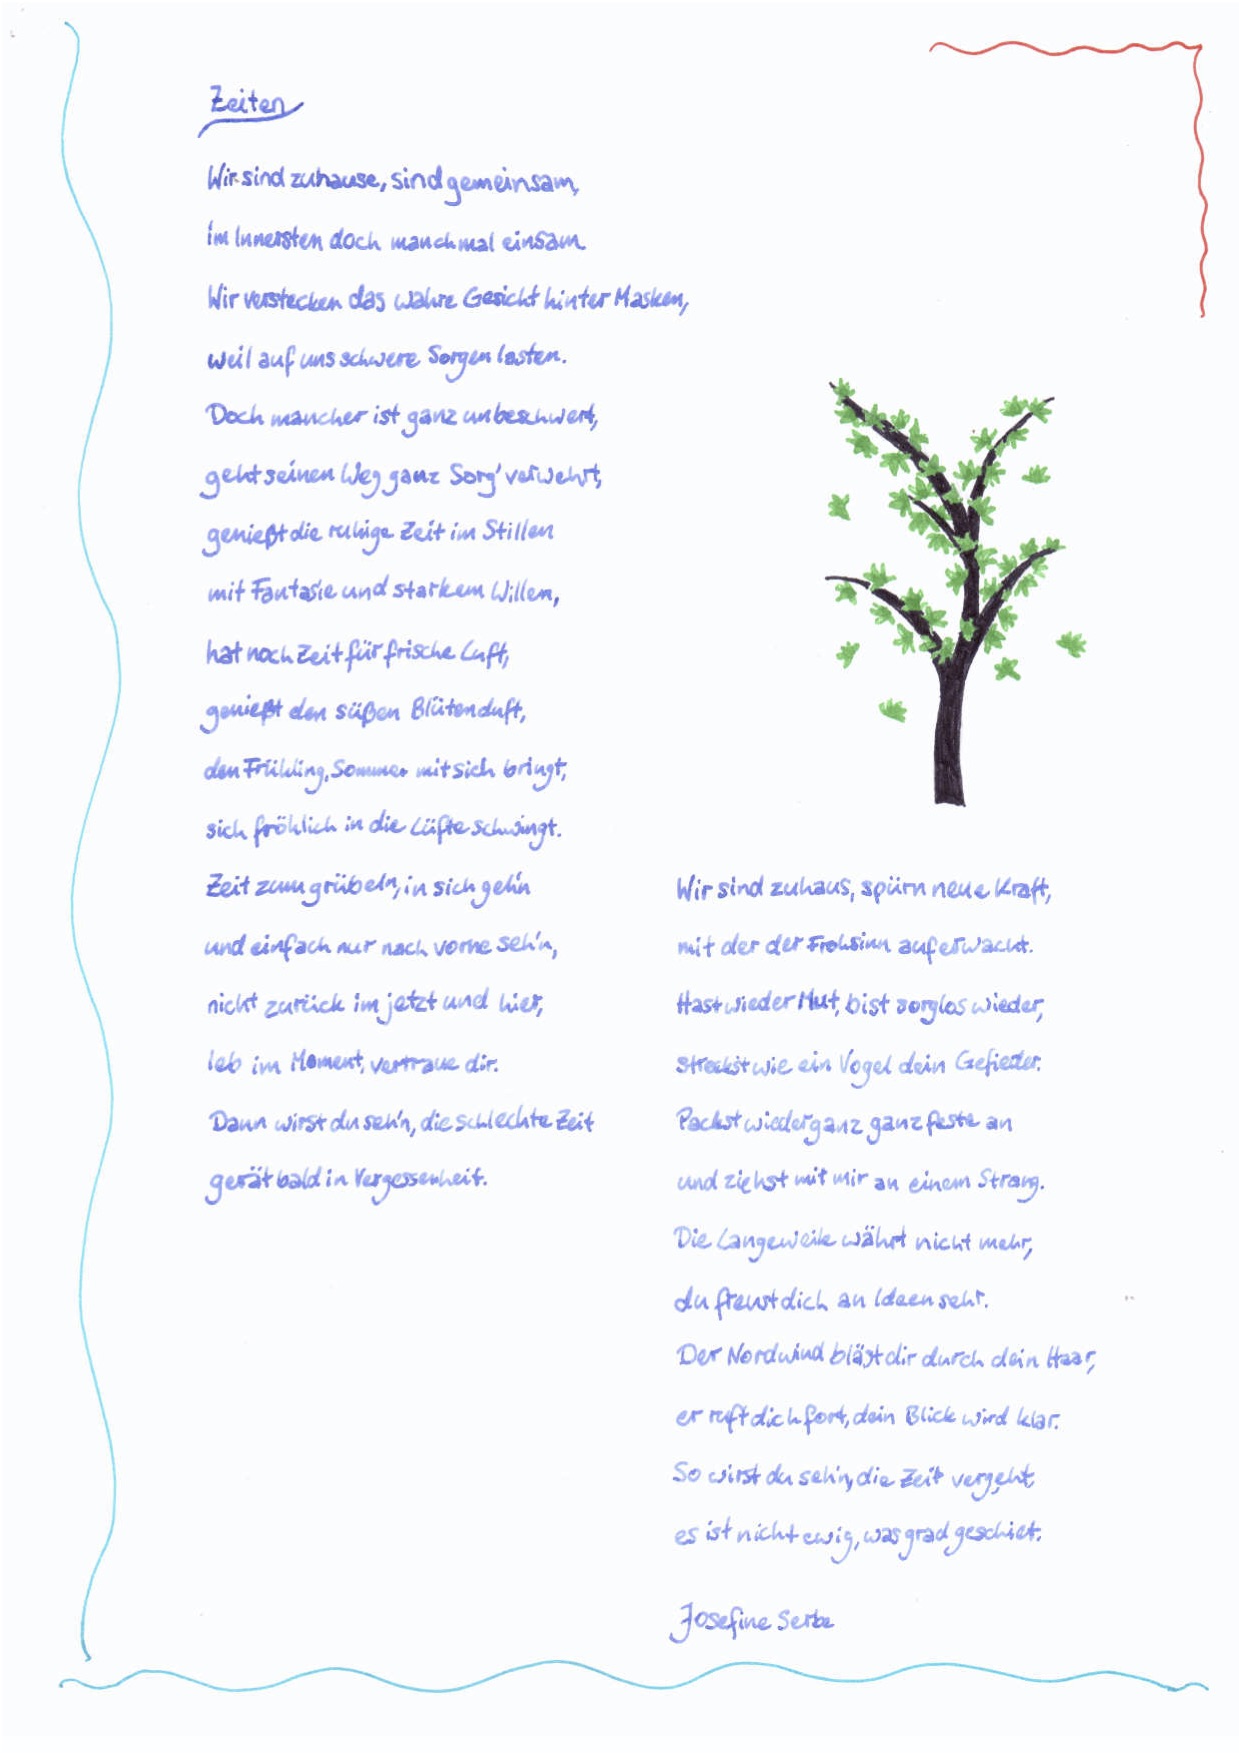 Zeiten
Wir sind zuhause, sind gemeinsam,
im Innersten doch manchmal einsam.
Wir verstecken das wahre Gesicht hinter Masken,
weil auf uns schwere Sorgen lasten.
Doch mancher ist ganz unbeschwert,
geht seinen Weg ganz Sorg' verwehrt,
genießt die ruhige Zeit im Stillen
mit Fantasie und starkem Willen,
hat noch Zeit für frische Luft,
genießt den süßen Blütenduft,
den Frühling, Sommer mit sich bringt,
sich fröhlich in die Lüfte schwingt.
Zeit zum grübeln, in sich geh'n
und einfach nur nach vorne seh'n,
nicht zurück im jetzt und hier,
leb im Moment, vertraue dir.
Dann wirst du seh'n, die schlechte Zeit
gerät bald in Vergessenheit.
Wir sind zuhaus, spürn neue Kraft,
mit der der Frohsinn auferwacht.
Hast wieder Mut, bist sorglos wieder,
streckst wie ein Vogel dein Gefieder.
Packst wieder ganz ganz feste an
und ziehst mit mir an einem Strang.
Die Langeweile währt nicht mehr,
du freust dich an Ideen sehr.
Der Nordwind bläst dir durch dein Haar,
er ruft dich fort, dein Blick wird klar.
So wirst du seh'n, die Zeit vergeht,
es ist nicht ewig, was grad geschiet.
Josefine Serbe